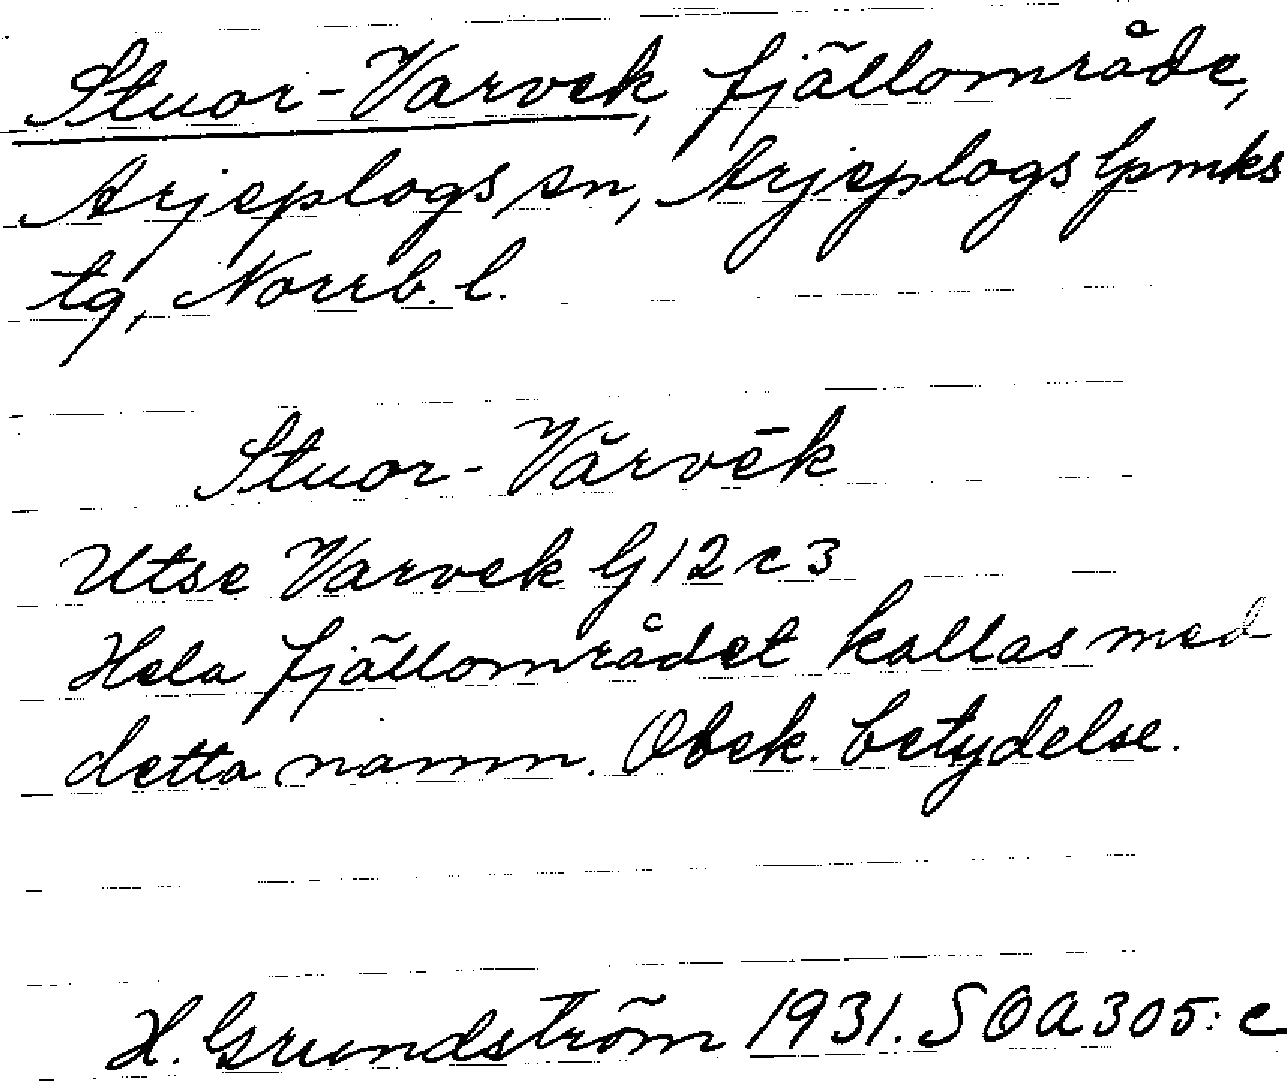 Stuor-Varvek, fjällområde,
Arjeplogs sn, Arjeplogs lpmks
tg, Norrb. l.
Stuor-Vărvēk
Utse Varvek G12c3
Hela fjällområdet kallas med
detta namn. Obek. betydelse.
H. Grundström 1931. SOA305:c